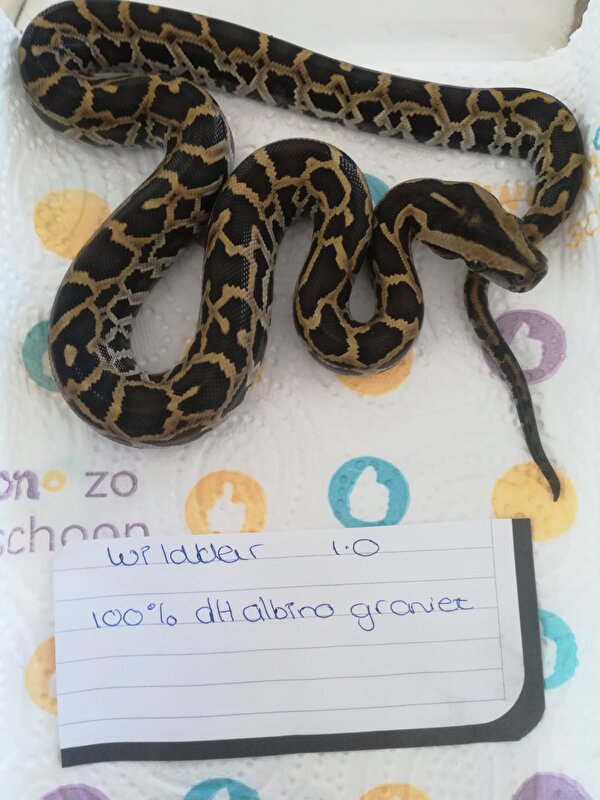 on zo
schoon
wildkleur 1.0
100% dH albino graniet